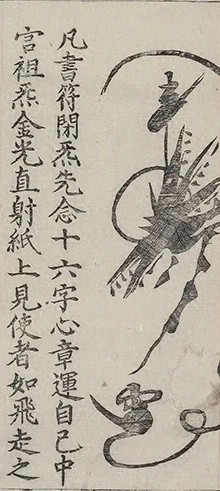 凡書符閉炁先念十六字心章運自己中
宫祖炁金光直射紙上見使者如飛走之